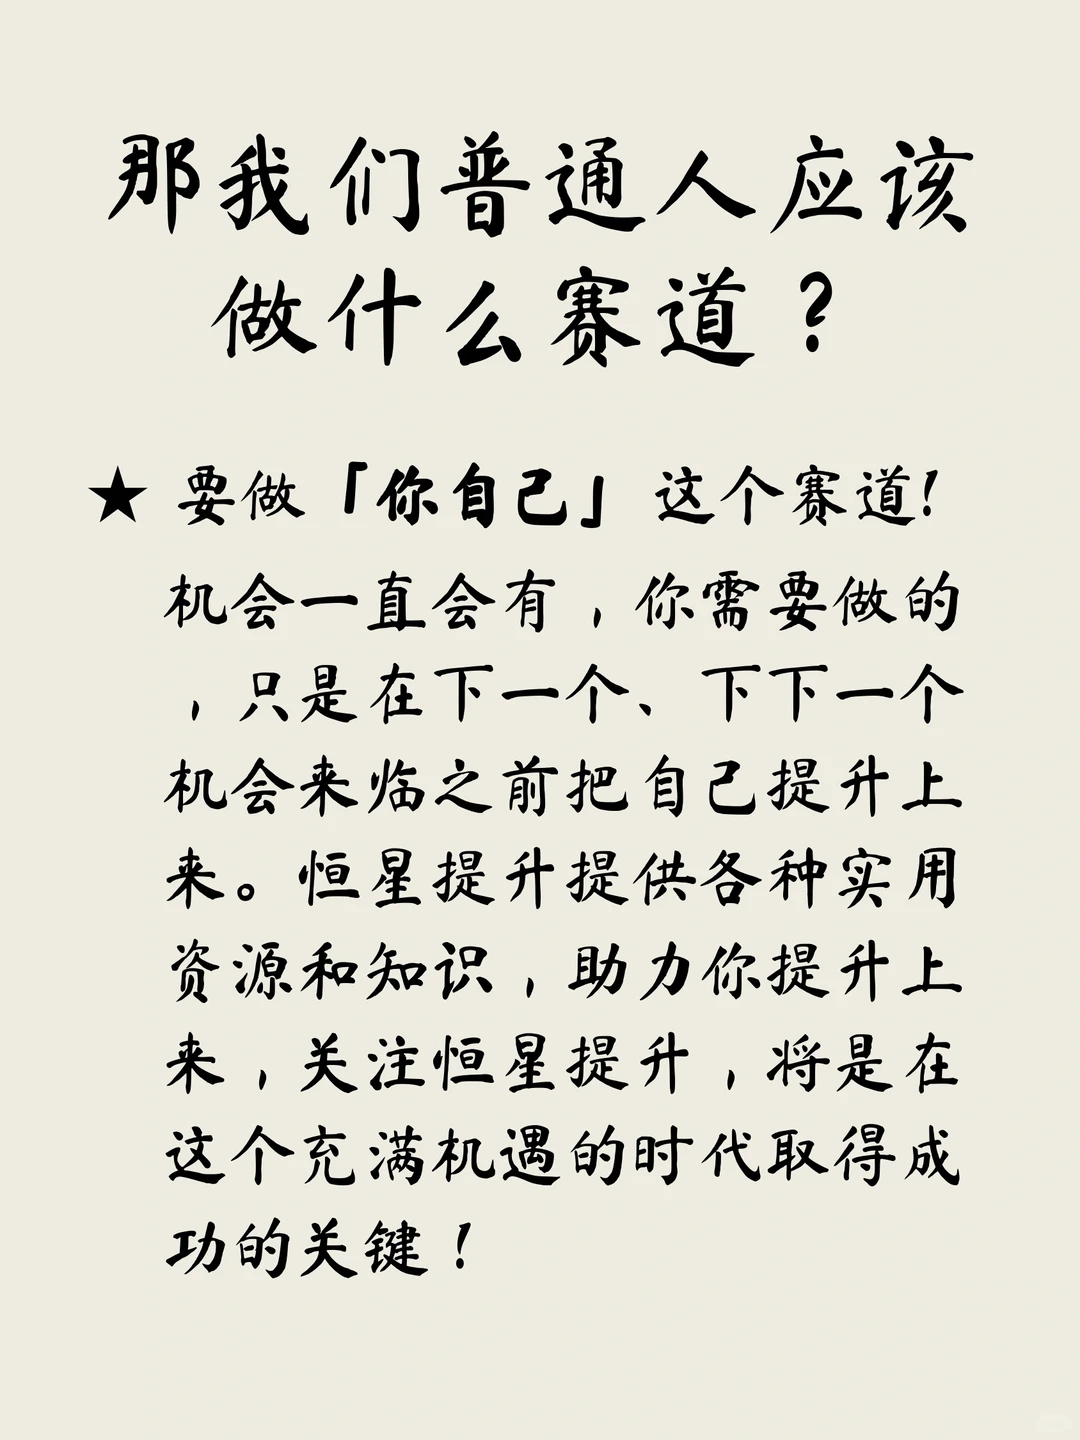 那我们普通人应该
做什么赛道？
★ 要做「你自己」这个赛道！
机会一直会有，你需要做的
，只是在下一个、下下一个
机会来临之前把自己提升上
来。恒星提升提供各种实用
资源和知识，助力你提升上
来，关注恒星提升，将是在
这个充满机遇的时代取得成
功的关键！